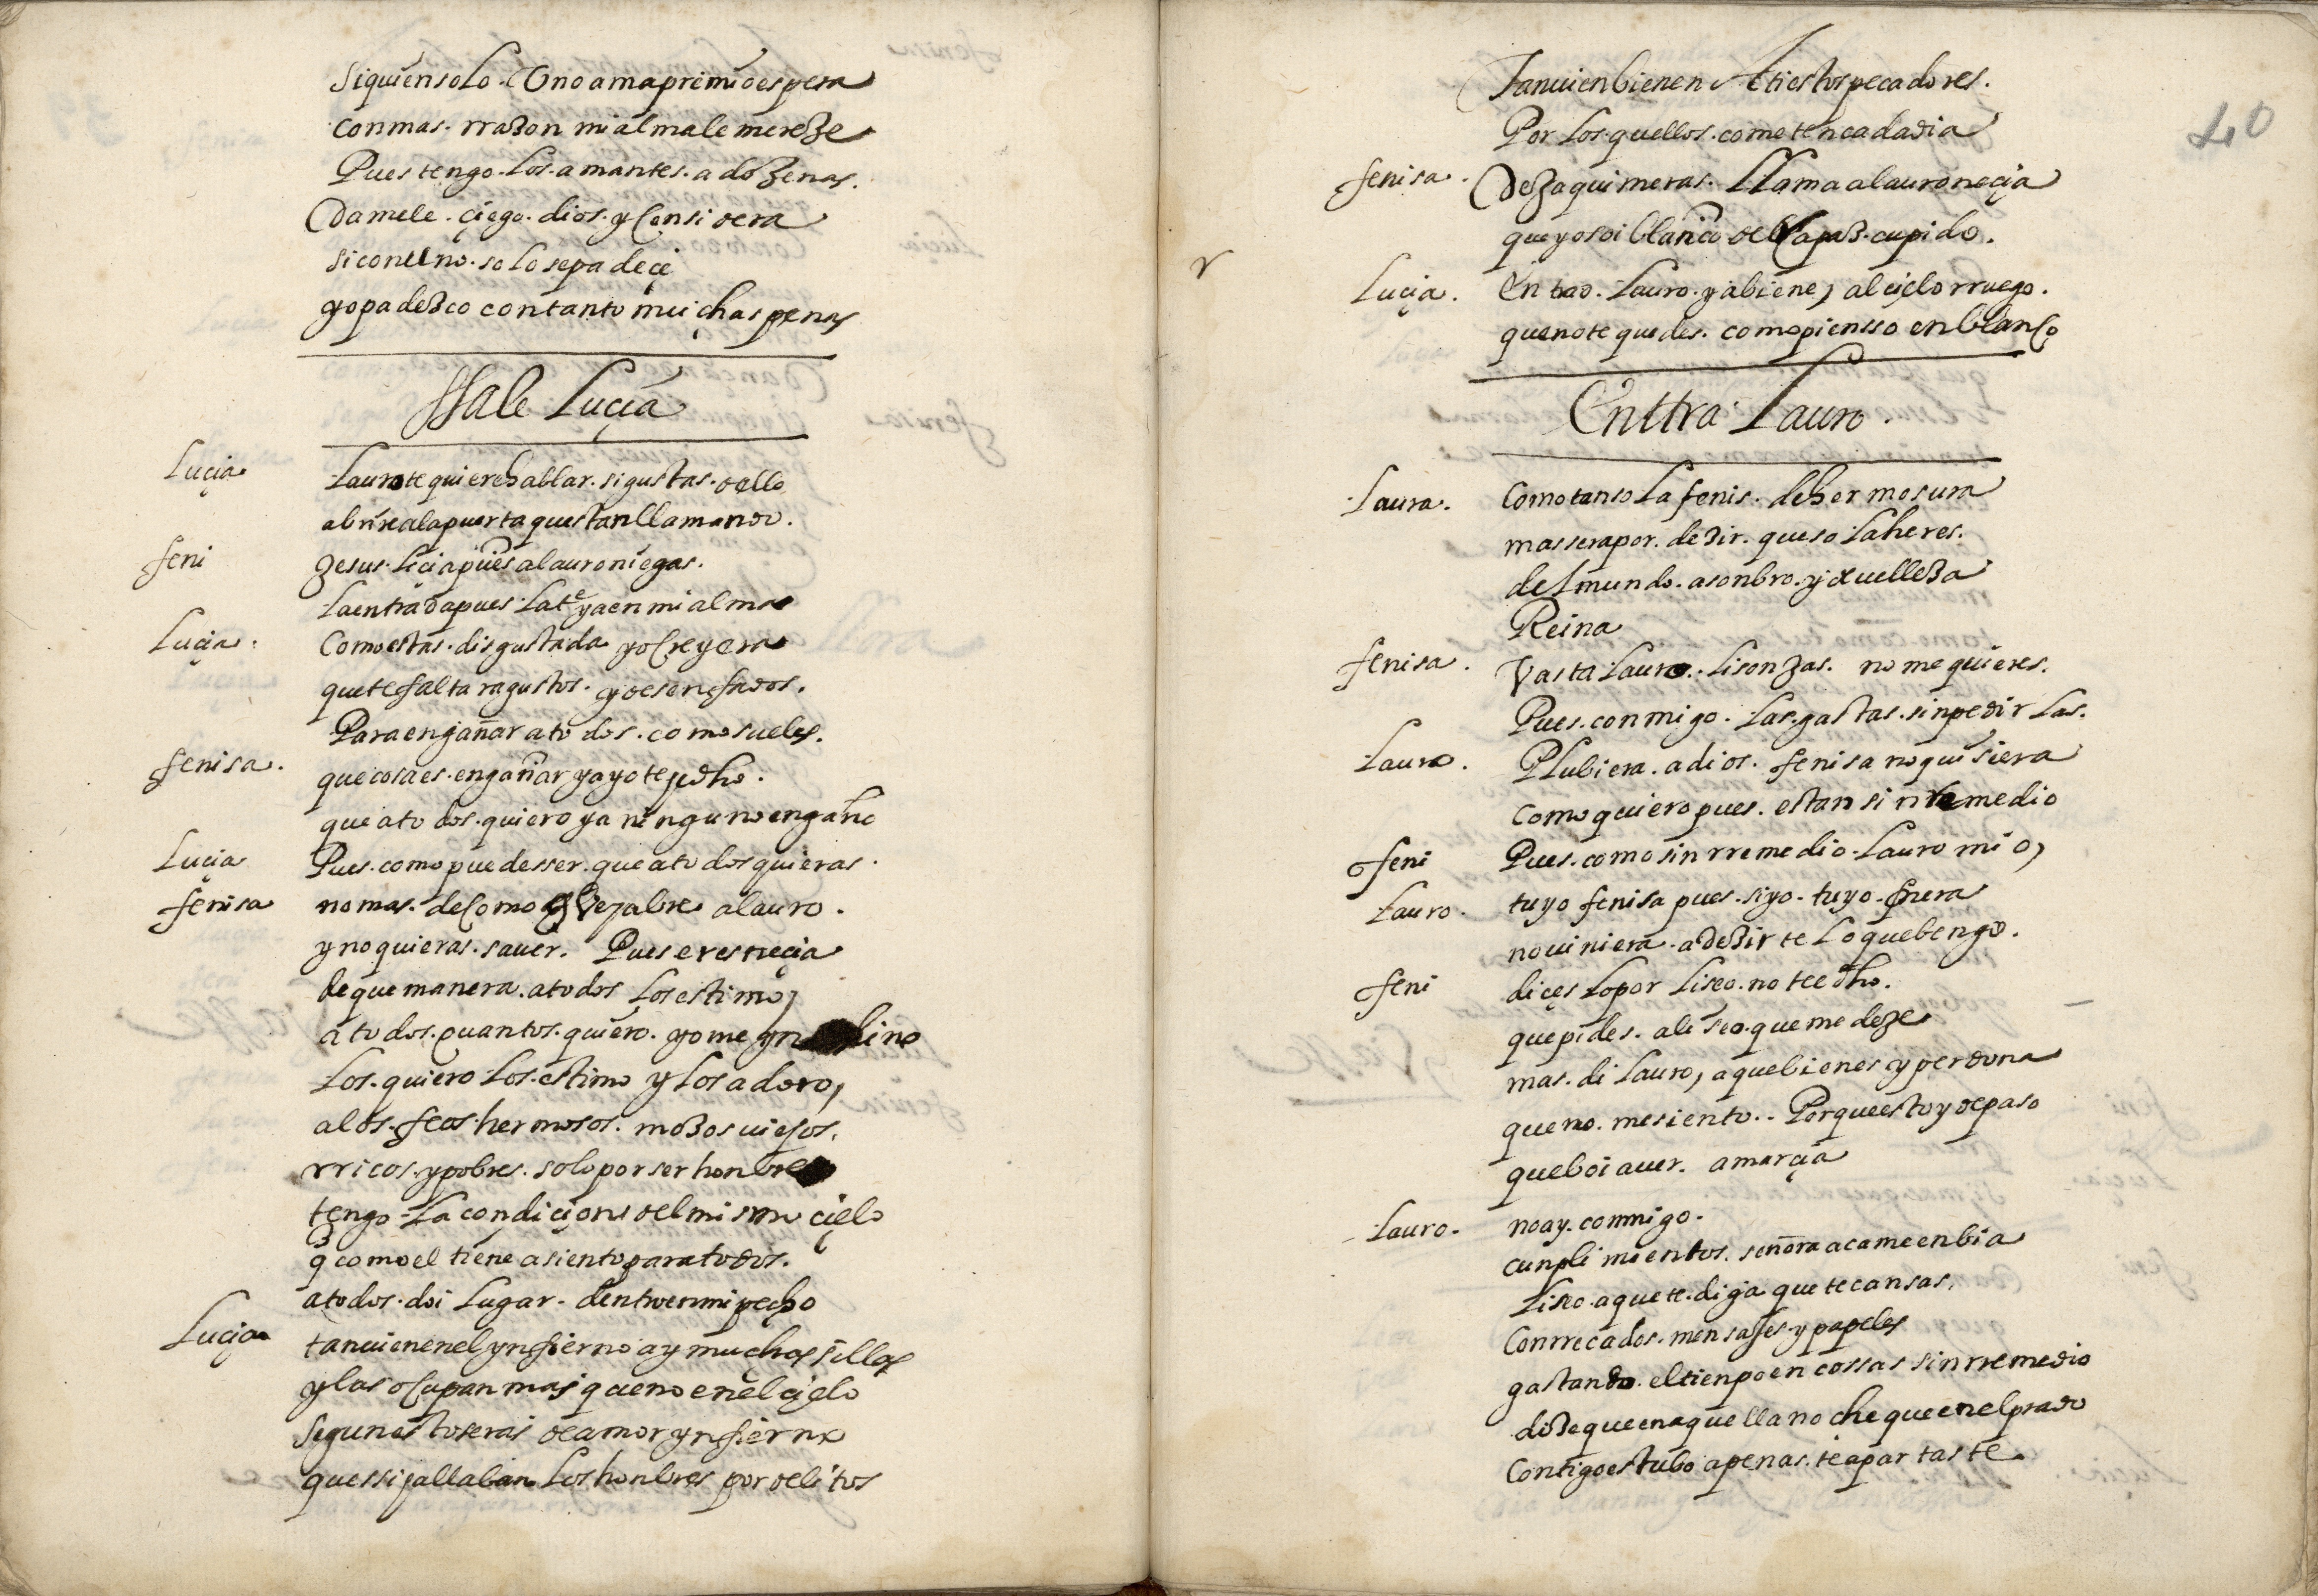 siquien solo uno ama premio espera
con mas. rraçon mi alma le mereze
Pues tengo. los. amantes. a dozenas.
Damele. çiego. dios. y considera
si con el uno. solo se padeçe
yo padezco con tanto muchas penas
Ssale Luçia
Luçia Lauro te quiere hablar. si gustas. dello
abrire a la puerta questan llamando.
feni Jesus. luçia pues a lauro niegas.
La entrada pues. la te ya en mi alma
Luçia. Como estas. disgustada yo creyera
que te faltaran gustos. y desenfados.
Para engañar a todos. como sueles.
fenisa. que cosa es. engañar ya yo te e dho.
que a todos. quiero y a ninguno engaño
Luçia Pues. como puede sser. que a todos quieras.
fenisa no mas. de como ve abre a lauro.
y no quieras. saver. Pues eres neçia
de que manera. a todos los estimo,
a todos. quantos. quiero. yo me yn lino
Los. quiero los. estimo y los adoro,
a los. feos hermosos. mozos viejos.
rricos. y pobres. solo por ser honbres
tengo. La condiçion del mismo çielo
q como el tiene asiento para todos.
a todos. doi lugar. dentro en mi pecho
Luçia tanvien en el ynfierno ay muchas sillas
y las ocupan mas que no en el çielo
segun esto seras de amor ynfierno
que ssi allaban los honbres por delitos
40
Tanvien bienen A ti estos pecadores.
Por los. quellos. cometen cada dia
fenisa. Deja quimeras. Llama a lauro neçia
que yo soi blanco del rapaz. cupido.
r
Luçia. Entrad. Lauro. ya biene, al çielo rruego.
que no te quedes. como piensso en blanco
Enttra Lauro.
Laura. Como tanso la fenis. de hermosura
mas sera por. dezir. que so la heres.
del mundo. asonbro. y velleza
Reina
fenisa. Vasta lauro. lisonjas. no me quieres.
Pues. conmigo. las. gastas. sin pedir las.
Lauro. Plubiera. a dios. fenisa no quisiera
como quiero pues. es tan sin remedio
feni Pues. como sin rremedio. Lauro mio,
Lauro. tuyo fenisa pues. si yo. tuyo. fuera
no viniera. a dezirte lo que bengo.
feni diçes lo por liseo. no te e dho.
que pides. a liseo. que me deje
mas. di lauro, a que bienes y perdona
que no. me siento.. Porque estoy de paso
que boi a ver. a marçia
Lauro. no ay. conmigo.
cunplimientos. señora aca me enbia
Liseo. a que te. diga que te cansas.
Con rrecados. mensajes. y papeles
gastando. el tienpo en cossas sin rremedio
dize que en aquella noche que en el prado
Contigo estubo apenas. te apartaste